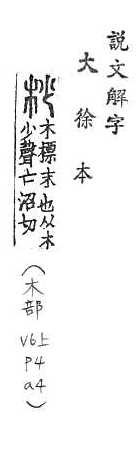 説文解字
大徐本
杪 木標末也从木
少聲亡沼切
(木部
V6上
P4
a4)